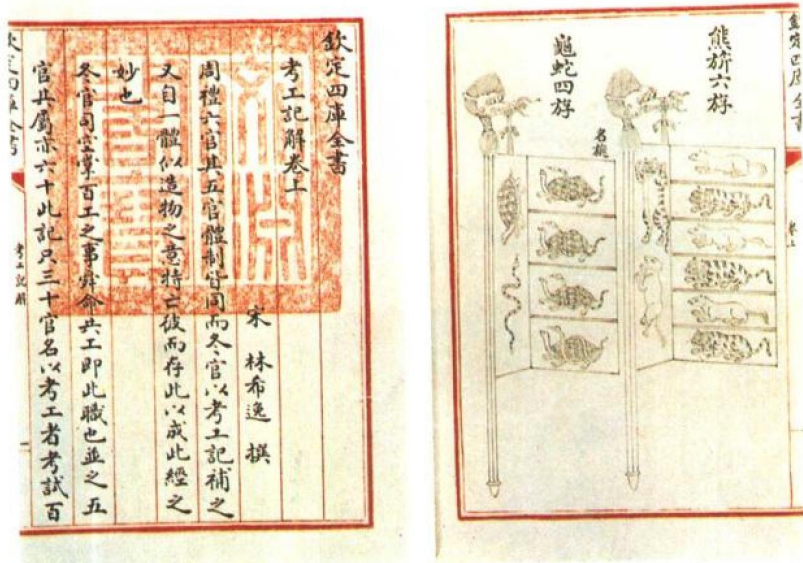 欽定四庫全書
考工記解卷上
宋 林希逸 撰
周禮六官其五官體制皆同而冬官以考工記補之
又自一體似造物之意特亡彼而存此以成此經之
妙也
冬官司空掌百工之事舜命共工即此職也並之五
官其屬亦六十此記只三十官名以考工者考試百
欽定四庫全書
考工記解
欽定四庫全書
卷上
熊旂六斿
龜蛇四斿
名旐